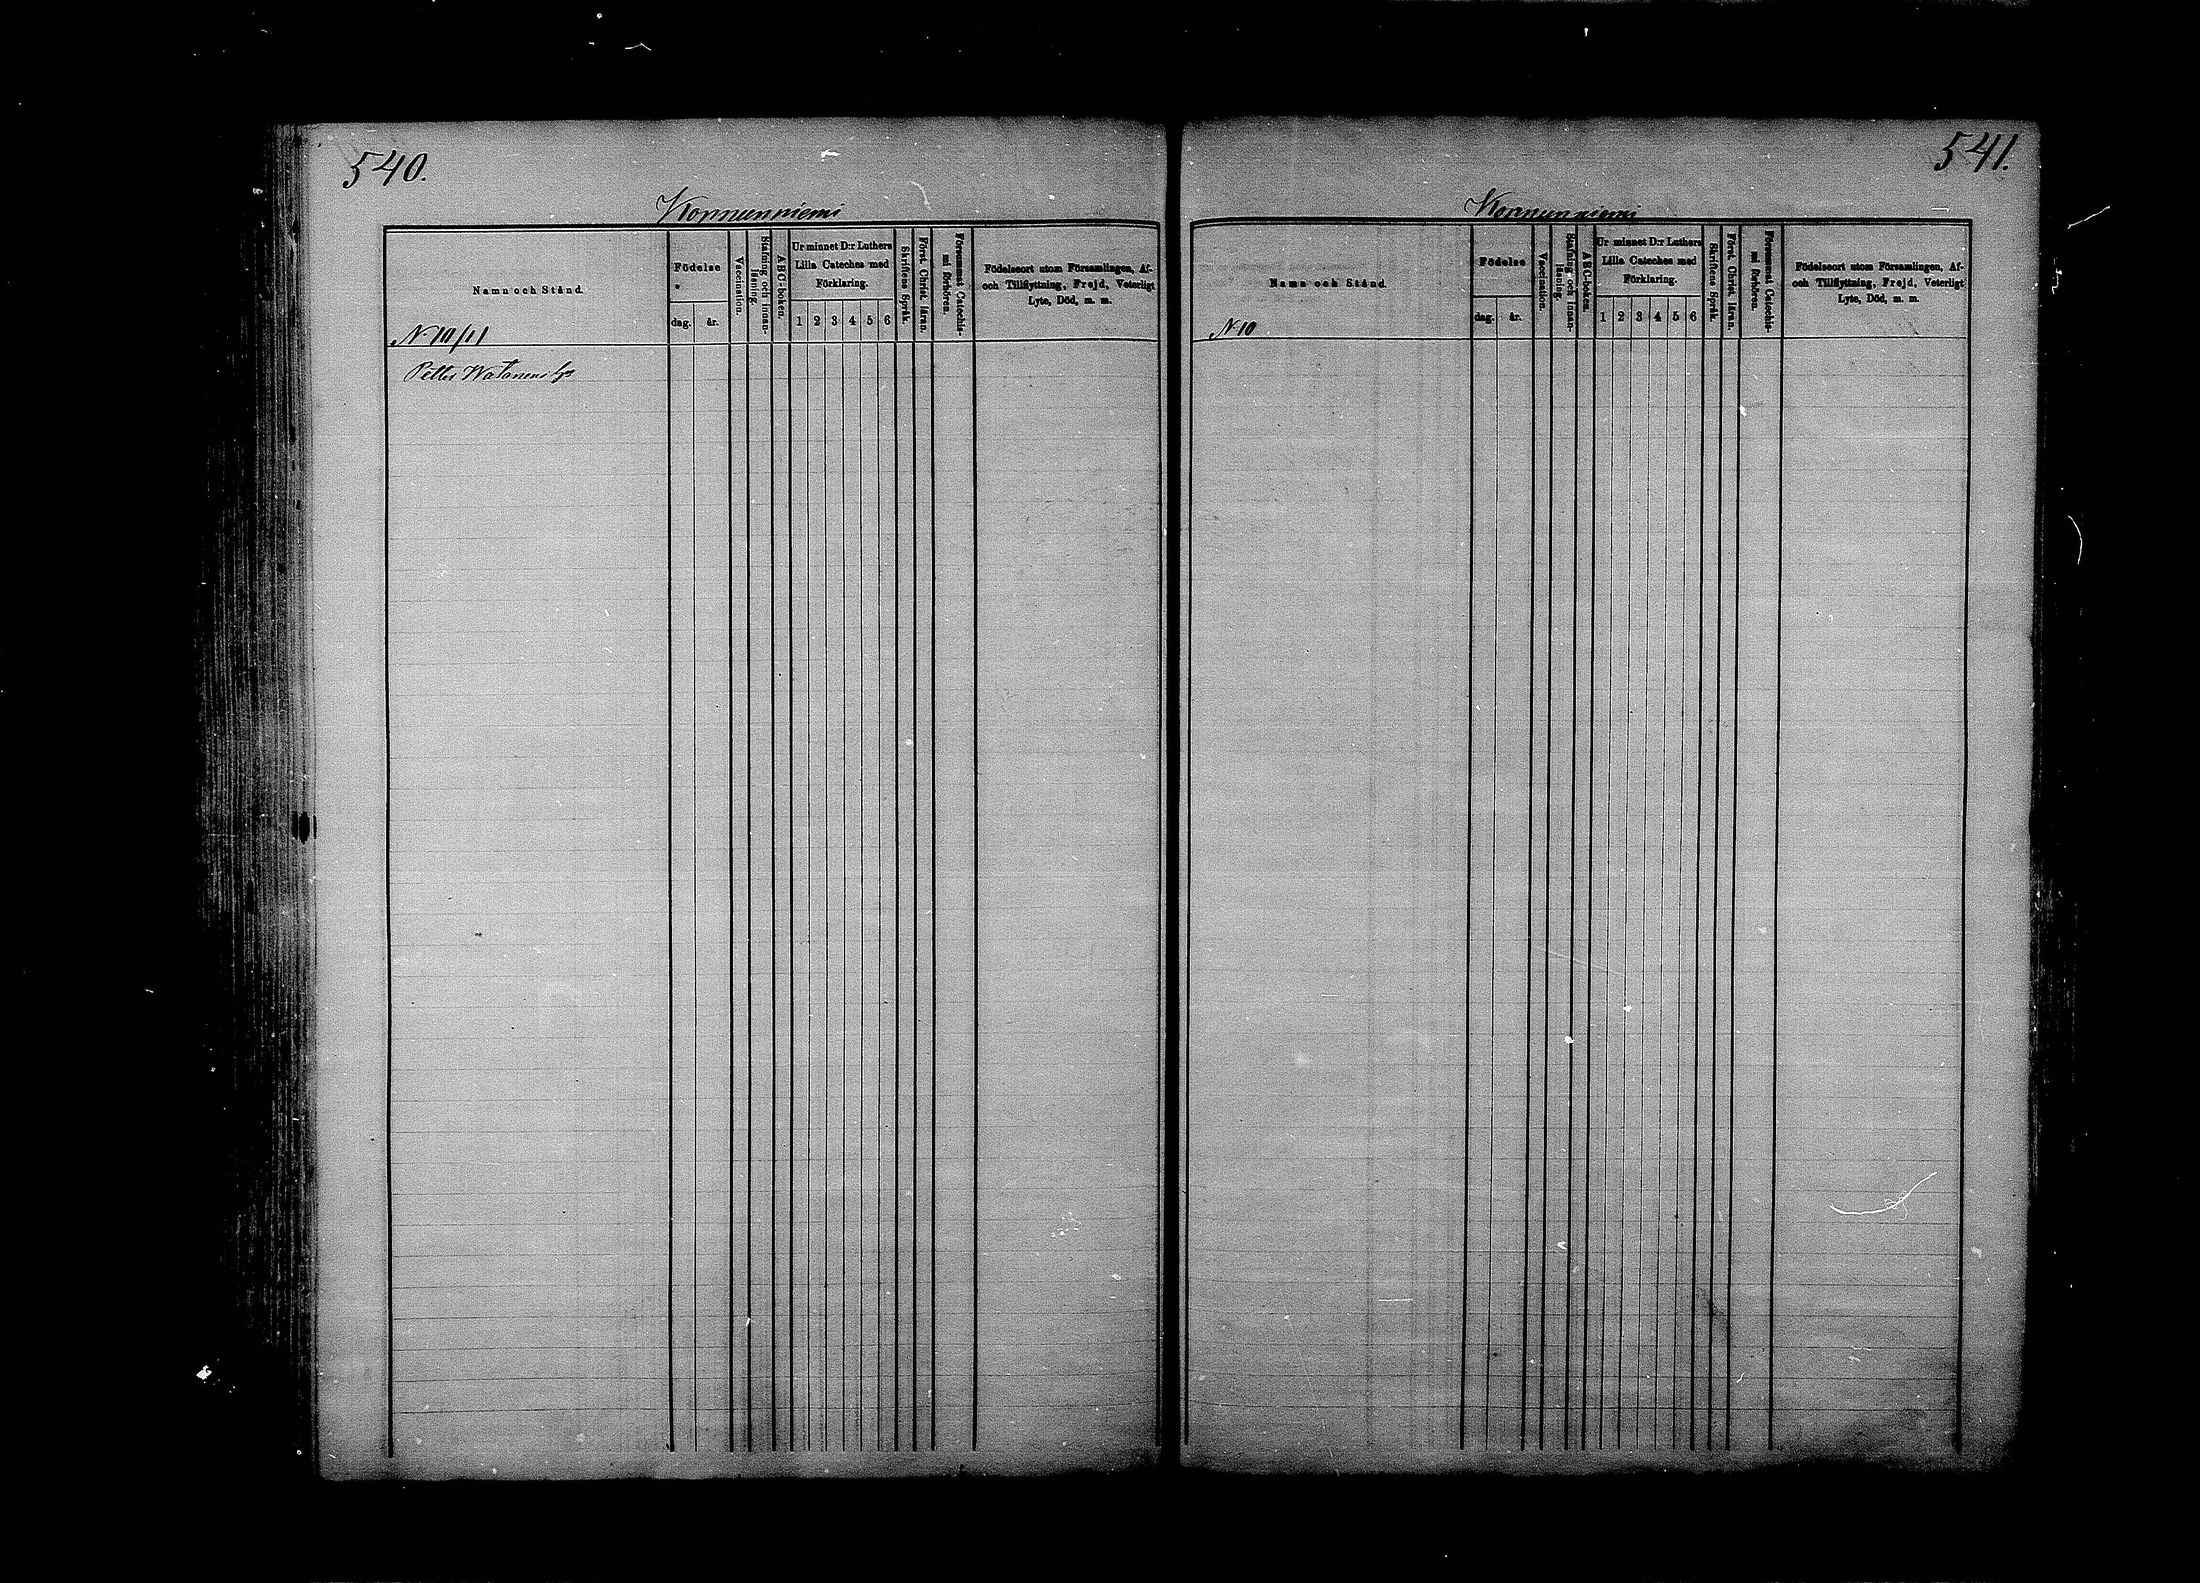 540.
Konnunniemi
Namn och Stånd.
Födelse
dag. år.
Vaccination.
Stafning och innan-
läsning.
ABC-boken.
Ur minnet D:r Luthers
Lilla Cateches med
Förklaring.
1 2 3 4 5 6
Skriftens Språk.
Först. Christ. läran.
Försummat Catechis-
mi förhören.
Födelseort utom Församlingen, Af-
och Tillflyttning, Frejd, Veterligt
Lyte, Död, m. m.
N. 10/11
Petter Watanens
541.
Konnunniemi
Namn och Stånd.
Födelse
dag. år.
Vaccination.
Stafning och innan-
läsning.
ABC-boken.
Ur minnet D:r Luthers
Lilla Cateches med
Förklaring.
1 2 3 4 5 6
Skriftens Språk.
Först. Christ. läran.
Försummat Catechis-
mi förhören.
Födelseort utom Församlingen, Af-
och Tillflyttning, Frejd, Veterligt
Lyte, Död, m. m.
N. 10